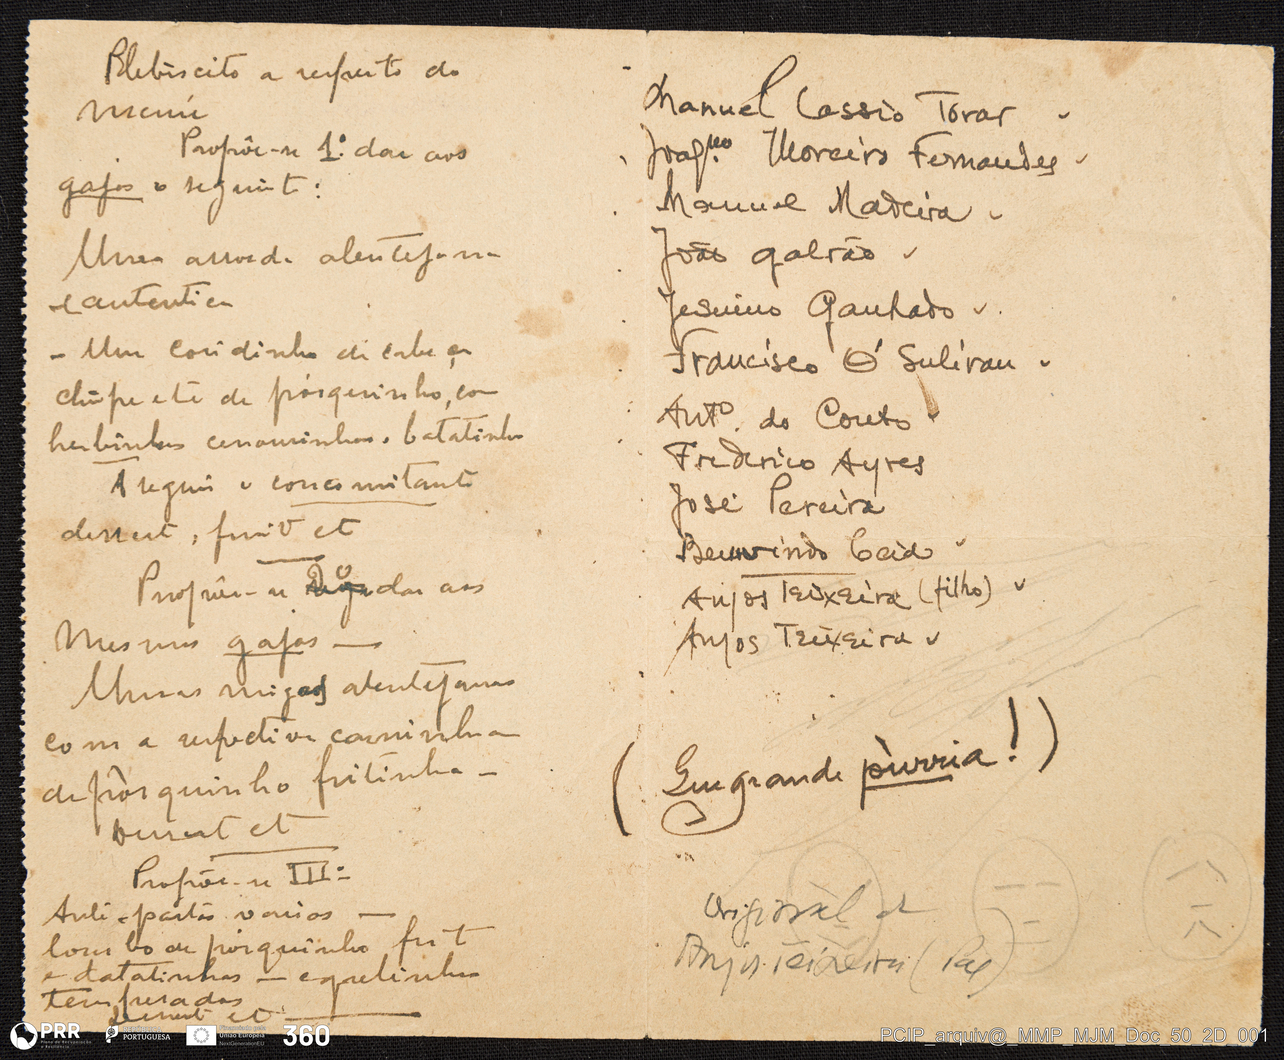 Plebiscito a respeito do
menú
Propõe-se 1º: dar aos
gajos o seguinte:
Uma assorda alentejana
e autentica
- Um cosidinho de cabeça
chispe etc de pòrquinho, com
herbinhas cenourinhas e batatinhas
A seguir e concomitante
dessert, fruit etc
Propõe-se 2º dar aos
mesmos gajos —
Umas migas alentejanas
com a respectiva carninha
de pòrquinho fritinha -
Dessert etc
Propõe-se III º
Anti-pastos varios —
lombo de pòrquinho frit
e batatinhas —
temperadas
dessert etc —
Manuel Cassio Tovar
Joaqm.º Moreira Fernandes
Manuel Madeira
João Galvão
Jesuino Ganhado
Francisco O' Sulivan
Antº. do Couto
Frederico Ayres
José Pereira
Bemvindo Ceia
Anjos Teixeira (filho)
Anjos Teixeira
(Que grande pùrria!)
Original de
Anjos Teixeira (Pae)
PRR
Plano de Recuperação e Resiliência
REPÚBLICA PORTUGUESA
Financiado pela
União Europeia
NextGenerationEU
360
PCIP_arquiv@_MMP_MJM_Doc_50_2D_001